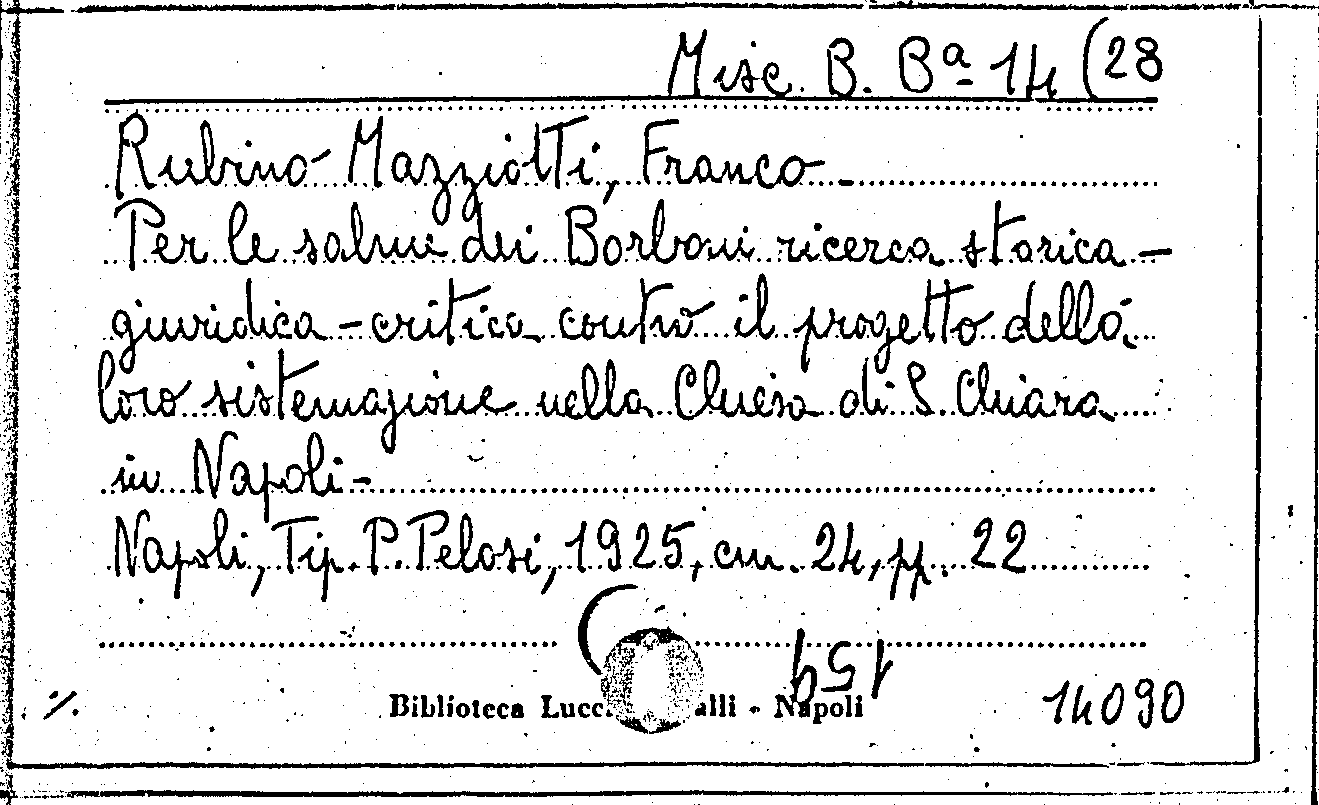 Misc. B. Bª 14 (28
Rubino Mazziotti, Franco
Per le salme dei Borboni ricerca storica-
giuridica-critica contro il progetto della
loro sistemazione nella Chiesa di S. Chiara
in Napoli-
Napoli, Tip. P. Pelosi, 1925, cm. 24, pp. 22
Biblioteca - Napoli
14090